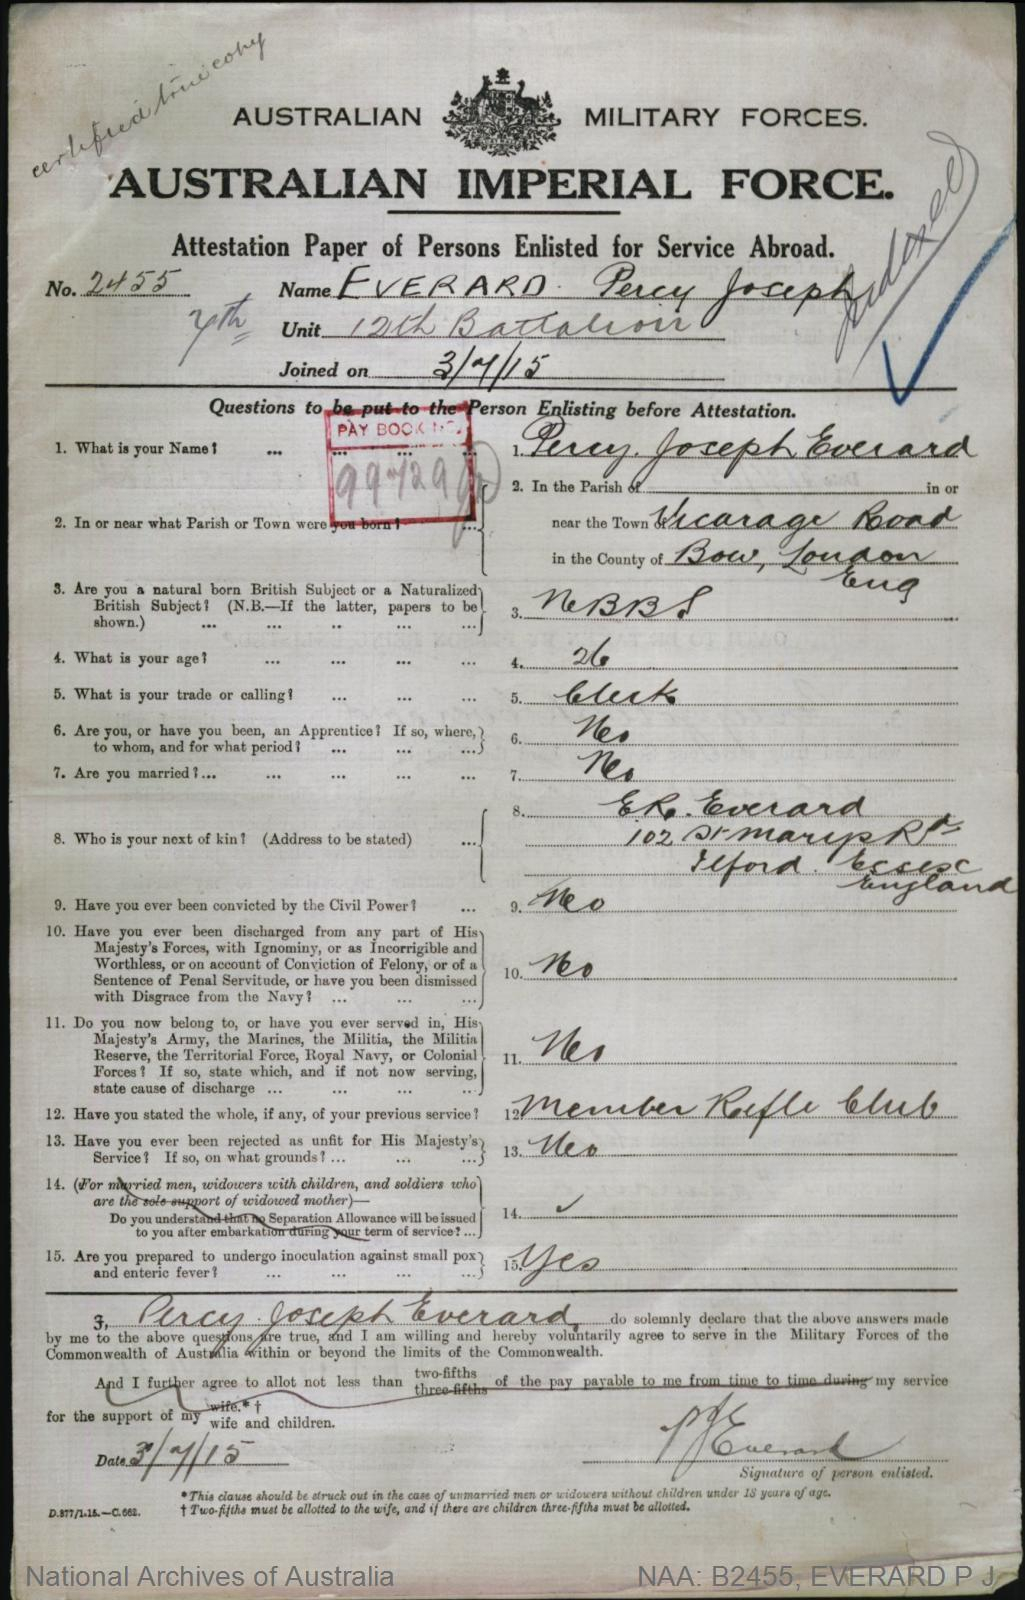 certified true copy
AUSTRALIAN MILITARY FORCES.
AUSTRALIAN IMPERIAL FORCE.
Indexed
Attestation Paper of Persons Enlisted for Service Abroad.
No. 2455 Name EVERARD. Percy Joseph
7th Unit 12th Battalion
Joined on 3/7/15
Questions to be put to the Person Enlisting before Attestation.
PAY BOOK NO.
99429
1. What is your Name? ... ... ... ... 1. Percy Joseph Everard
2. In or near what Parish or Town were you born? ... 2. In the Parish of in or
near the Town of Vicarage Road
in the County of Bow, London
Eng
3. Are you a natural born British Subject or a Naturalized
British Subject? (N.B.—If the latter, papers to be
shown.) ... ... ... ... ... 3. N B B S
4. What is your age? ... ... ... ... 4. 26
5. What is your trade or calling? ... ... ... 5. Clerk
6. Are you, or have you been, an Apprentice? If so, where,
to whom, and for what period? ... ... ... 6. No
7. Are you married? ... ... ... ... ... 7. No
8. Who is your next of kin? (Address to be stated) ... 8. E R. Everard
102 St Marys Rd
Ilford. Essex
England
9. Have you ever been convicted by the Civil Power? ... 9. No
10. Have you ever been discharged from any part of His
Majesty's Forces, with Ignominy, or as Incorrigible and
Worthless, or on account of Conviction of Felony, or of a
Sentence of Penal Servitude, or have you been dismissed
with Disgrace from the Navy? ... ... ... 10. No
11. Do you now belong to, or have you ever served in, His
Majesty's Army, the Marines, the Militia, the Militia
Reserve, the Territorial Force, Royal Navy, or Colonial
Forces? If so, state which, and if not now serving,
state cause of discharge ... ... ... ... 11. No
12. Have you stated the whole, if any, of your previous service? 12. Member Rifle Club
13. Have you ever been rejected as unfit for His Majesty's
Service? If so, on what grounds? ... ... ... 13. No
14. (For married men, widowers with children, and soldiers who
are the sole support of widowed mother)—
Do you understand that no Separation Allowance will be issued
to you after embarkation during your term of service? ... 14. ✓
15. Are you prepared to undergo inoculation against small pox
and enteric fever? ... ... ... ... 15. Yes
I, Percy Joseph Everard, do solemnly declare that the above answers made
by me to the above questions are true, and I am willing and hereby voluntarily agree to serve in the Military Forces of the
Commonwealth of Australia within or beyond the limits of the Commonwealth.
And I further agree to allot not less than two-fifths three-fifths of the pay payable to me from time to time during my service
for the support of my wife.*† wife and children.
Date 3/7/15 P J Everard
Signature of person enlisted.
* This clause should be struck out in the case of unmarried men or widowers without children under 18 years of age.
D.877/1.15.—C.662. † Two-fifths must be allotted to the wife, and if there are children three-fifths must be allotted.
National Archives of Australia NAA: B2455, EVERARD P J